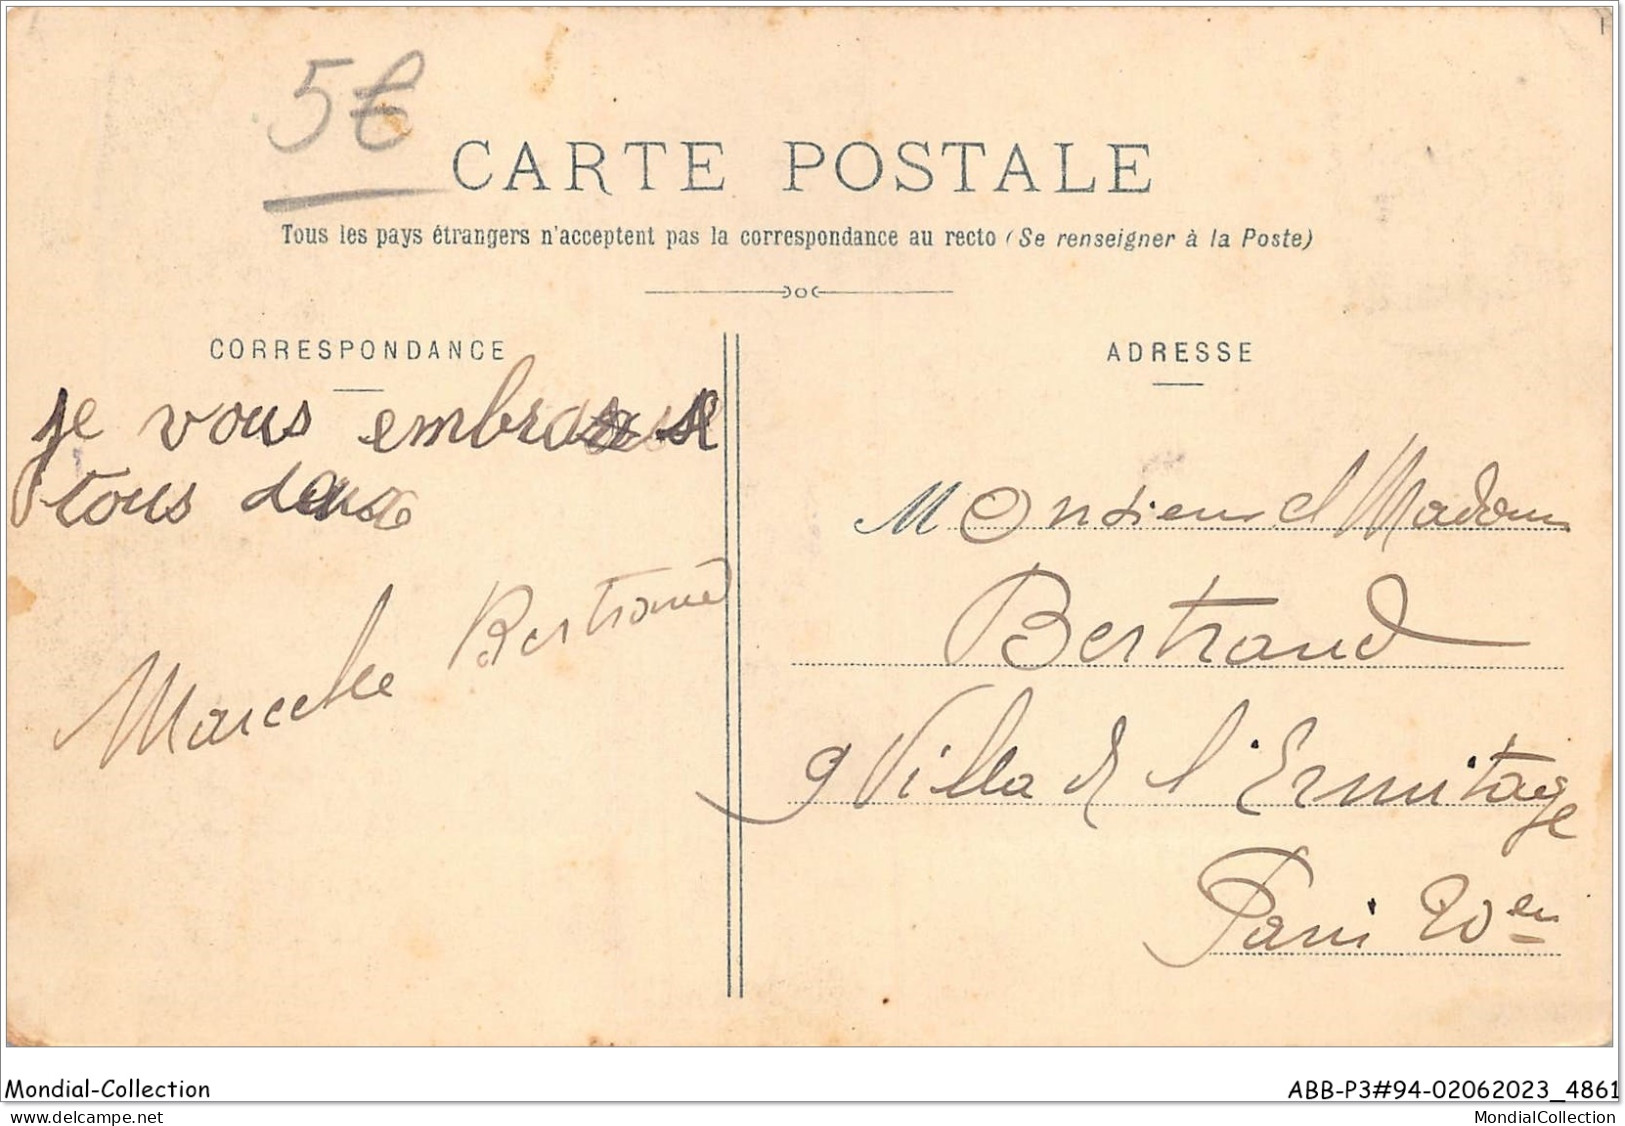 5€
CARTE POSTALE
Tous les pays étrangers n'acceptent pas la correspondance au recto (Se renseigner à la Poste)
CORRESPONDANCE
je vous embrasse
tous deux
Marcelle Bertrand
ADRESSE
Monsieur et Madame
Bertrand
9 Villa de l'Ermitage
Paris 20en
Mondial-Collection
ABB-P3#94-02062023_4861
www.delcampe.net
MondialCollection